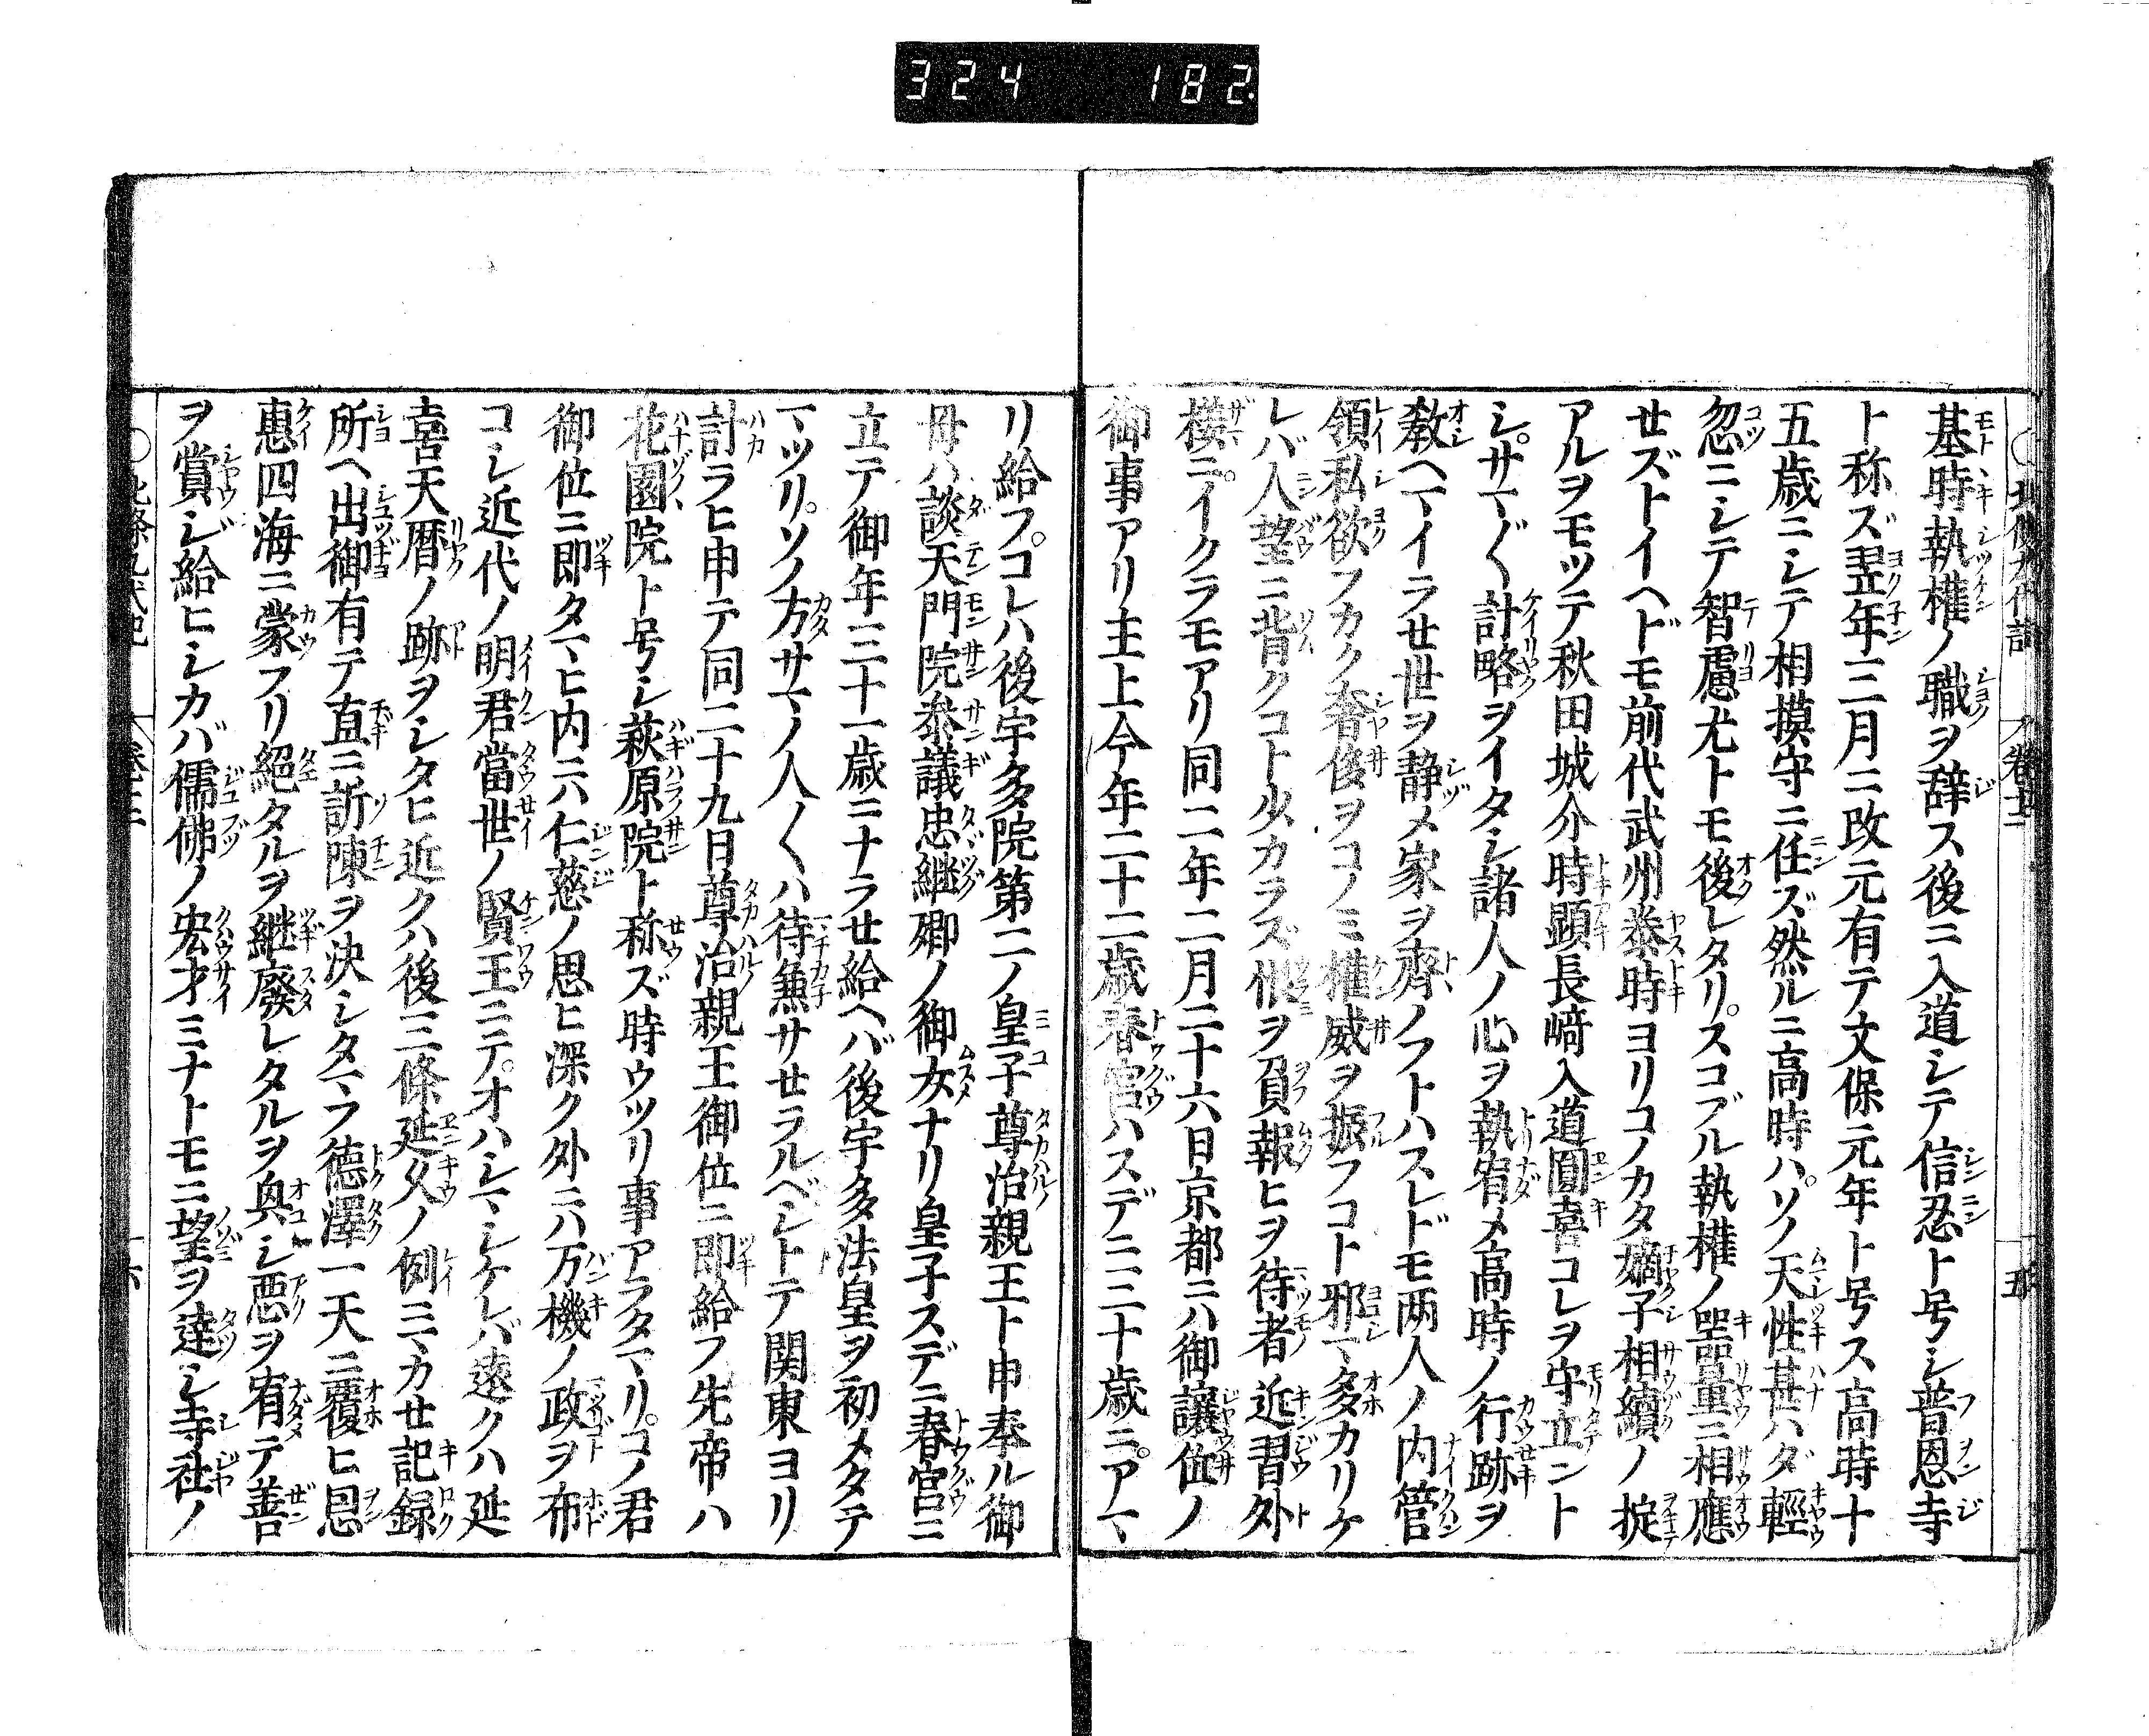 324 182.
北條九代記 卷十二 五
基時執權ノ職ヲ辞ス後ニ入道シテ信忍ト号シ普恩寺
ト称ズ翌年二月ニ改元有テ文保元年ト号ス高時十
五歳ニシテ相摸守ニ任ズ然ルニ高時ハ。ソノ天性甚ハダ輕
忽ニシテ智慮尤トモ後レタリ。スコブル執權ノ噐量ニ相應
セズトイヘドモ前代武州泰時ヨリコノカタ嫡子相續ノ掟
アルヲモツテ秋田城介時顕長﨑入道圓喜コレヲ守立ント
シ。サマ〴〵計略ヲイタシ諸人ノ心ヲ執宥メ高時ノ行跡ヲ
敎ヘマイラセ世ヲ静メ家ヲ齊ノフトハスレドモ两人ノ内管
領私欲フカク奢侈ヲコノミ權威ヲ振フコト邪マ多カリケ
レバ人望ニ背クコト少カラズ恨ヲ負報ヒヲ待者近習外
樣ニ。イクラモアリ同二年二月二十六日京都ニハ御讓位ノ
御事アリ主上今年二十二歳春宮ハスデニ三十歳ニ。アマ
リ給フ。コレハ後宇多院第二ノ皇子尊治親王ト申奉ル御
母ハ談天門院叅議忠継卿ノ御女ナリ皇子スデニ春宮ニ
立テ御年三十一歳ニナラセ給ヘバ後宇多法皇ヲ初メタテ
マツリ。ソノ方サマノ人〱ハ待兼サセラルベシトテ関東ヨリ
計ラヒ申テ同二十九日尊治親王御位ニ即給フ先帝ハ
花園院ト号シ萩原院ト称ズ時ウツリ事アラタマリ。コノ君
御位ニ即タマヒ内ニハ仁慈ノ思ヒ深ク外ニハ万機ノ政ヲ布
コシ近代ノ明君當世ノ賢王ニテ。オハシマシケレバ遠クハ延
喜天暦ノ跡ヲシタヒ近クハ後三條延久ノ例ニマカセ記録
所ヘ出御有テ直ニ訴陳ヲ決シタマフ德澤一天ニ覆ヒ恩
惠四海ニ蒙フリ絕タルヲ継廢レタルヲ興シ悪ヲ宥テ善
ヲ賞シ給ヒシカバ儒佛ノ宏才ミナトモニ望ヲ達シ寺社ノ
北條九代記 卷十二 六